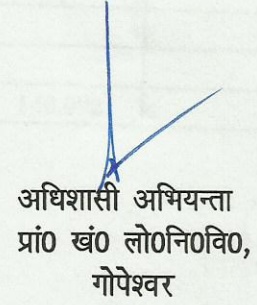 अधिशासी अभियन्ता
प्रां0 खं0 लो0नि0वि0,
गोपेश्वर